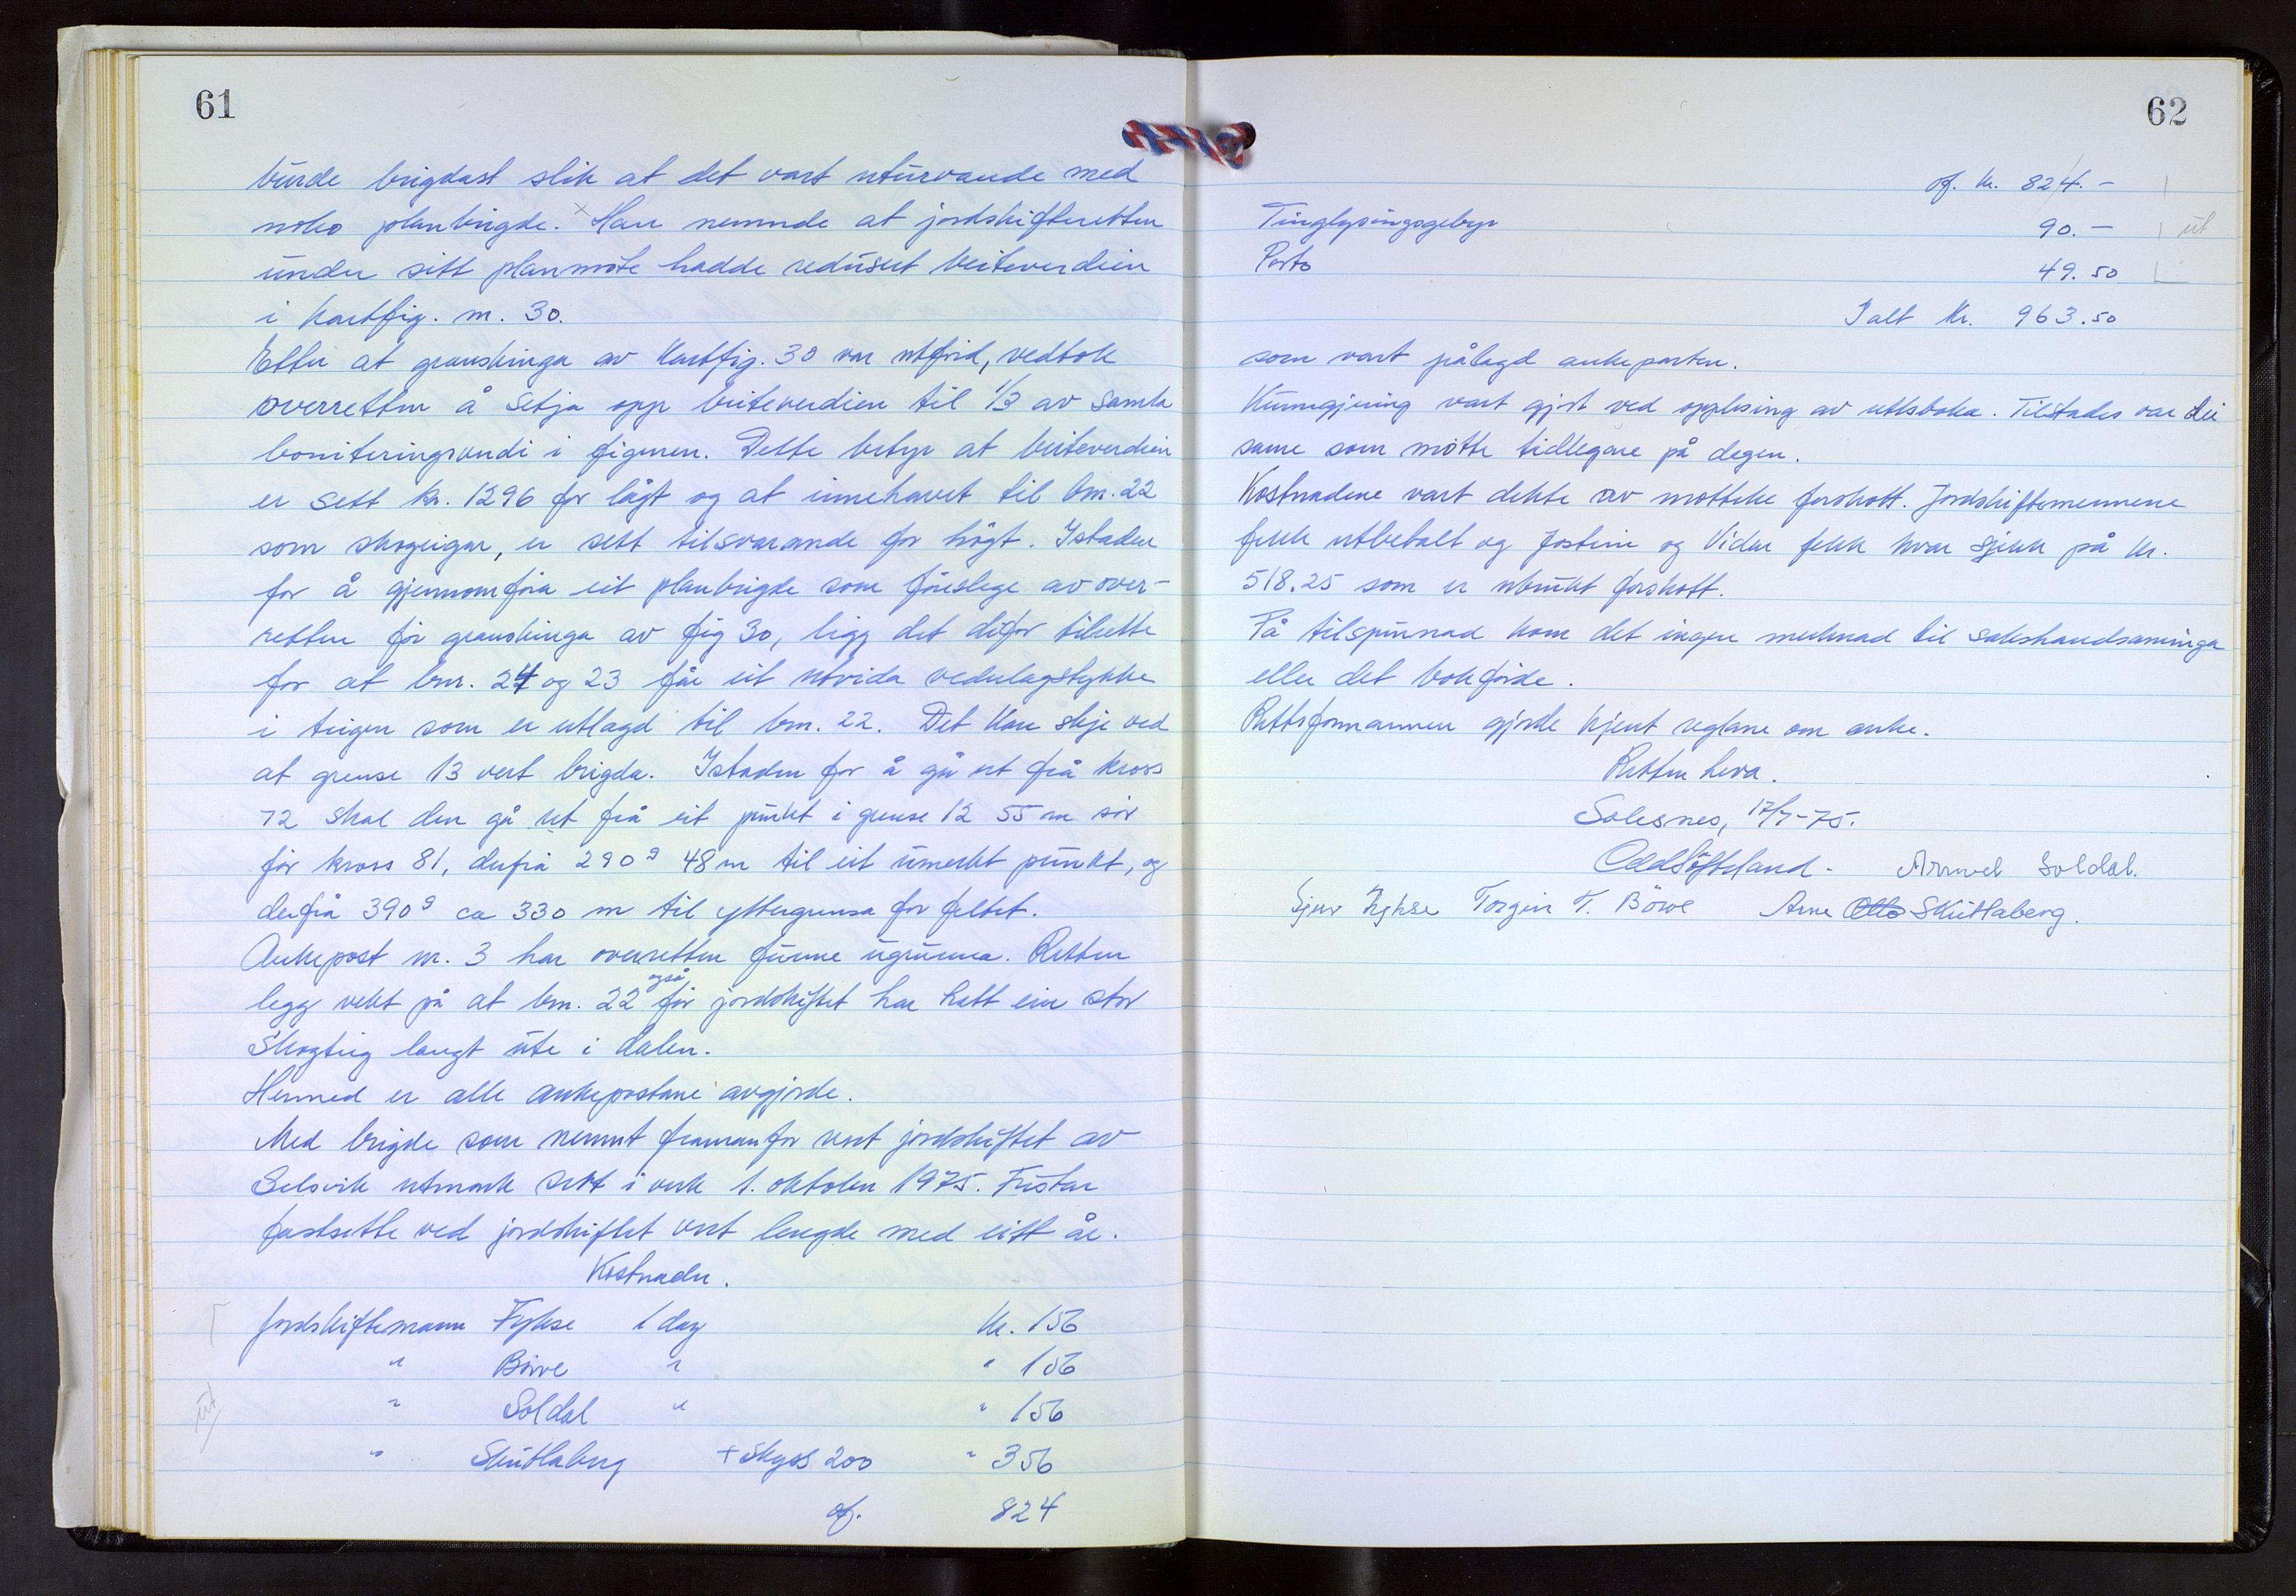 61
burde brigdast slik at det vart uturvande med
noko planbrigde. Han nemnde at jordskifteretten
under sitt planmøte hadde redusert beiteverdien
i kartfig. nr. 30.
Etter at granskinga av kartfig. 30 var utførd, vedtok
overretten å setja opp beiteverdien til 1/3 av samla
boniteringsverdi i figuren. Dette betyr at beiteverdien
er sett kr. 1296 for lågt og at innehavet til bnr. 22
som skogeigar, er sett tilsvarande for høgt. Istaden
for å gjennomføra eit planbrigde som føreslege av over-
retten før granskinga av fig 30, ligg det difor tilrette
for at bnr. 24 og 23 får eit utvida vedulagstykke
i teigen som er utlagd til bnr. 22. Det kan skje ved
at grense 13 vert brigda. Istaden for å gå ut frå kross
72 skal den gå ut frå eit punkt i grense 12 55 m sør
for kross 81, derfrå 290 g 48 m til eit umerkt punkt, og
derfrå 390 g ca 330 m til yttergrensa for feltet.
Ankepost nr. 3 har overretten funne ugrunna. Retten
legg vekt på at bnr. 22 også før jordskiftet har hatt ein stor
skogteig langt ute i dalen.
Hermed er alle ankepostane avgjorde.
Med brigde som nemnt framanfor vert jordskiftet av
Selsvik utmark sett i verk 1. oktober 1975. Fristar
fastsette ved jordskiftet vert lengde med eitt år.
Kostnader.
Jordskiftemann Fykse 1 dag kr. 156
" Børve " " 156
ut " Soldal " " 156
" Skutlaberg + skyss 200 " 356
of. 824
62
of. kr. 824.-
Tinglysingsgebyr 90.- ut
Porto 49.50
I alt kr. 963.50
som vart pålagd ankeparten.
Kunngjering vart gjort ved opplesing av rettsboka. Tilstades var dei
same som møtte tidlegare på dagen.
Kostnadene vart dekte av motteke forskott. Jordskiftemennene
fekk utbetalt og Jostein og Vidar fekk kvar sjekk på kr.
518.25 som er ubrukt forskott.
På tilspurnad kom det ingen merknad til sakshandsaminga
eller det bokførde.
Rettsformannen gjorde kjent reglane om anke.
Retten heva.
Solesnes, 17/7-75.
Odd Løfteland. Arnved Soldal.
Sjur Fykse Torgeir T. Börve Arne Otto Skutlaberg.